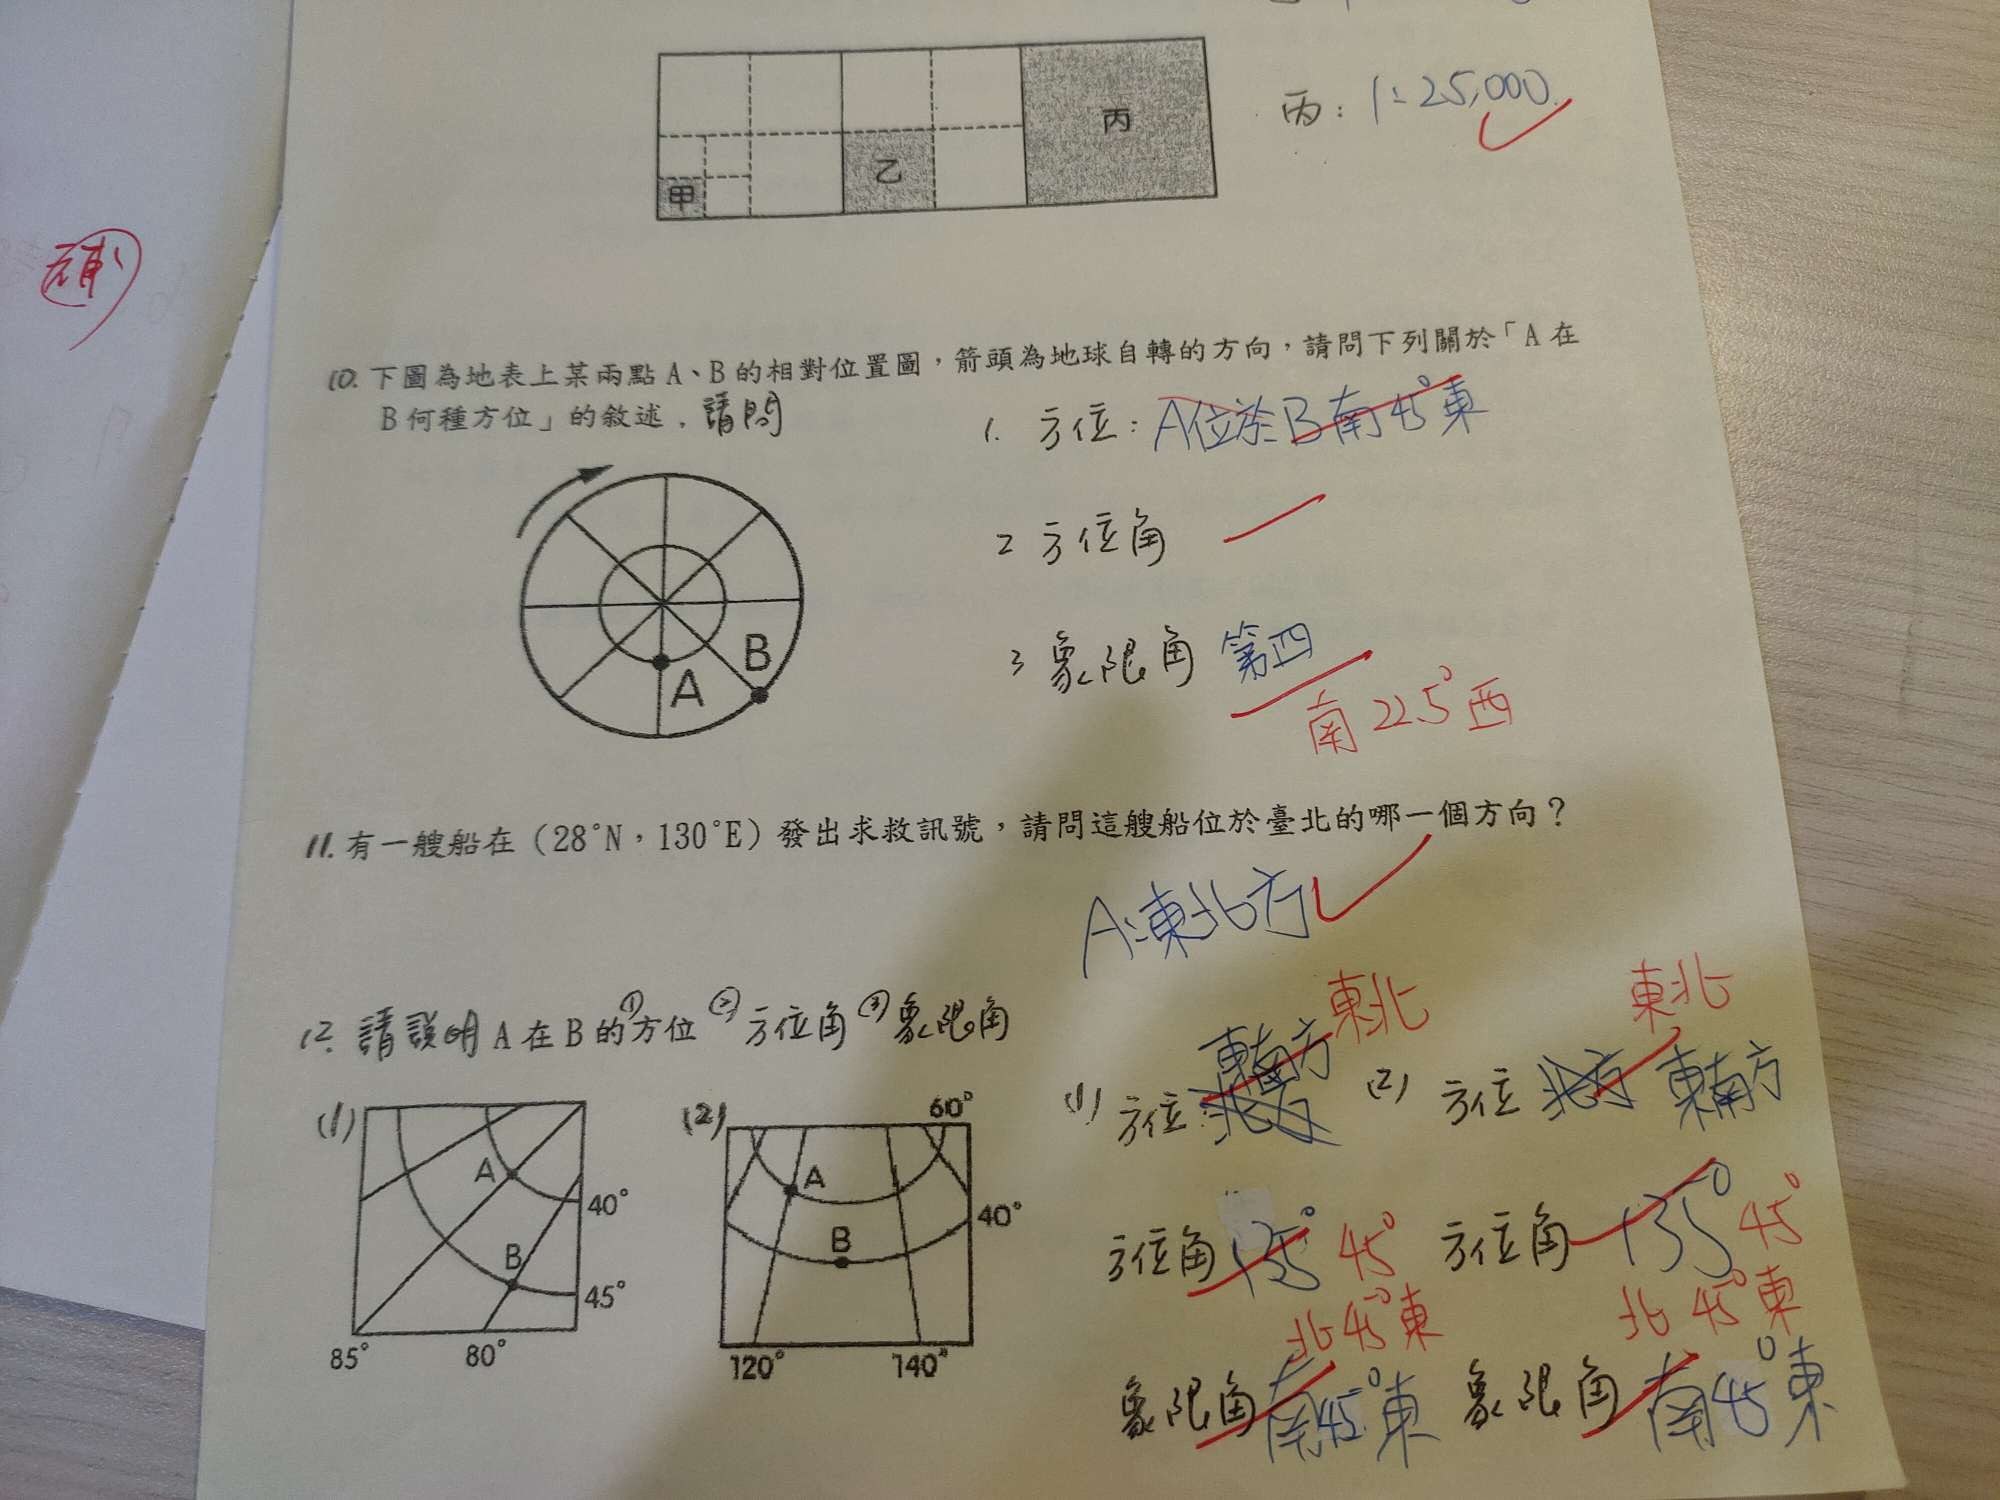 甲
乙
丙
丙: 1:25,000
補
10. 下圖為地表上某兩點 A、B 的相對位置圖，箭頭為地球自轉的方向，請問下列關於「A 在
B 何種方位」的敘述. 請問
1. 方位: A位於B南45°東
2 方位角
3 象限角 第四
南22.5°西
A
B
11. 有一艘船在（28°N，130°E）發出求救訊號，請問這艘船位於臺北的哪一個方向？
A:東北方
12. 請說明 A 在 B 的①方位 ②方位角 ③象限角
(1)
A
B
40°
45°
85°
80°
(2)
60°
A
B
40°
120°
140°
(1) 方位: 東南方 東北
(2) 方位 北方 東南方 東北
方位角 135° 45°
方位角 135° 45°
北45°東
象限角 南45°東
北45°東
象限角 南45°東